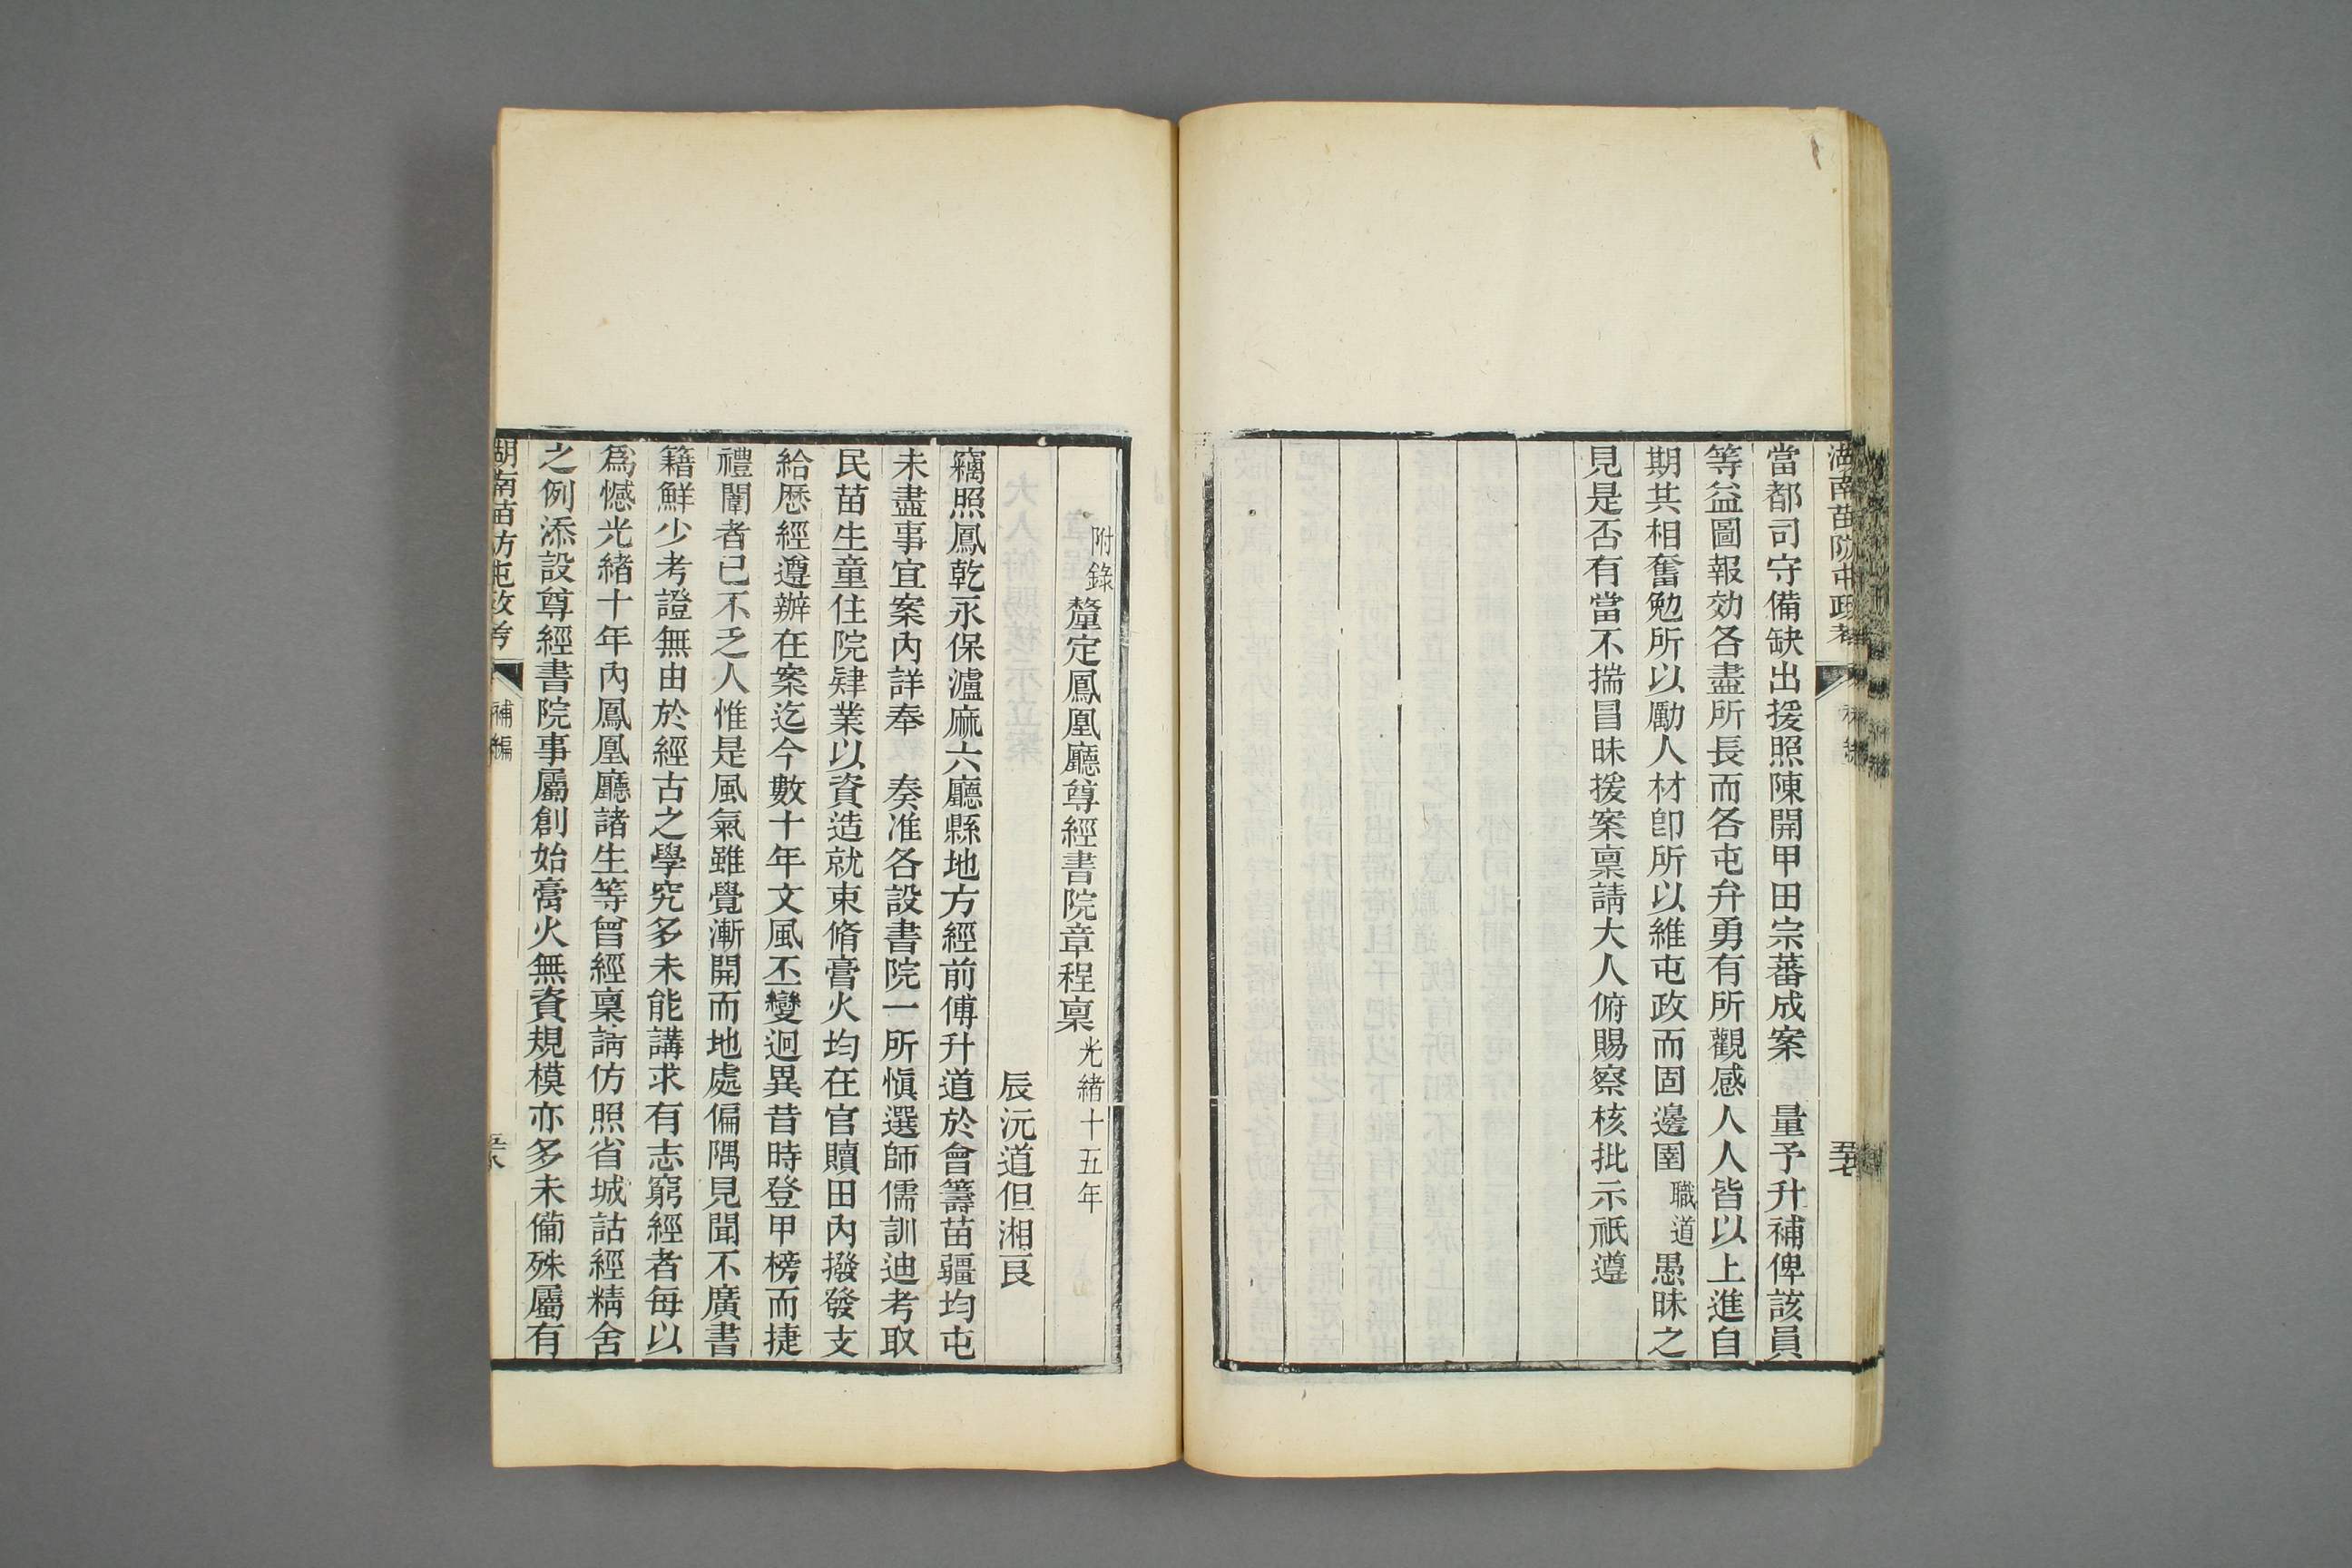 湖南苗防屯政考
補編
五七
當都司守備缺出援照陳開甲田宗蕃成案　量予升補俾該員
等益圖報効各盡所長而各屯弁勇有所觀感人人皆以上進自
期其相奮勉所以勵人材卽所以維屯政而固邊圉職道愚昧之
見是否有當不揣昌昧援案稟請大人俯賜察核批示祇遵
附錄釐定鳳凰廳尊經書院章程稟光緒十五年
辰沅道但湘良
竊照鳳乾永保瀘麻六廳縣地方經前傅升道於會籌苗疆均屯
未盡事宜案內詳奉　奏准各設書院一所愼選師儒訓迪考取
民苗生童住院肄業以資造就束脩膏火均在官贖田內撥發支
給歷經遵辦在案迄今數十年文風丕變迥異昔時登甲榜而捷
禮闈者已不乏人惟是風氣雖覺漸開而地處偏隅見聞不廣書
籍鮮少考證無由於經古之學究多未能講求有志窮經者每以
爲憾光緒十年內鳳凰廳諸生等曾經稟請仿照省城詁經精舍
之例添設尊經書院事屬創始膏火無資規模亦多未備殊屬有
湖南苗防屯政考
補編